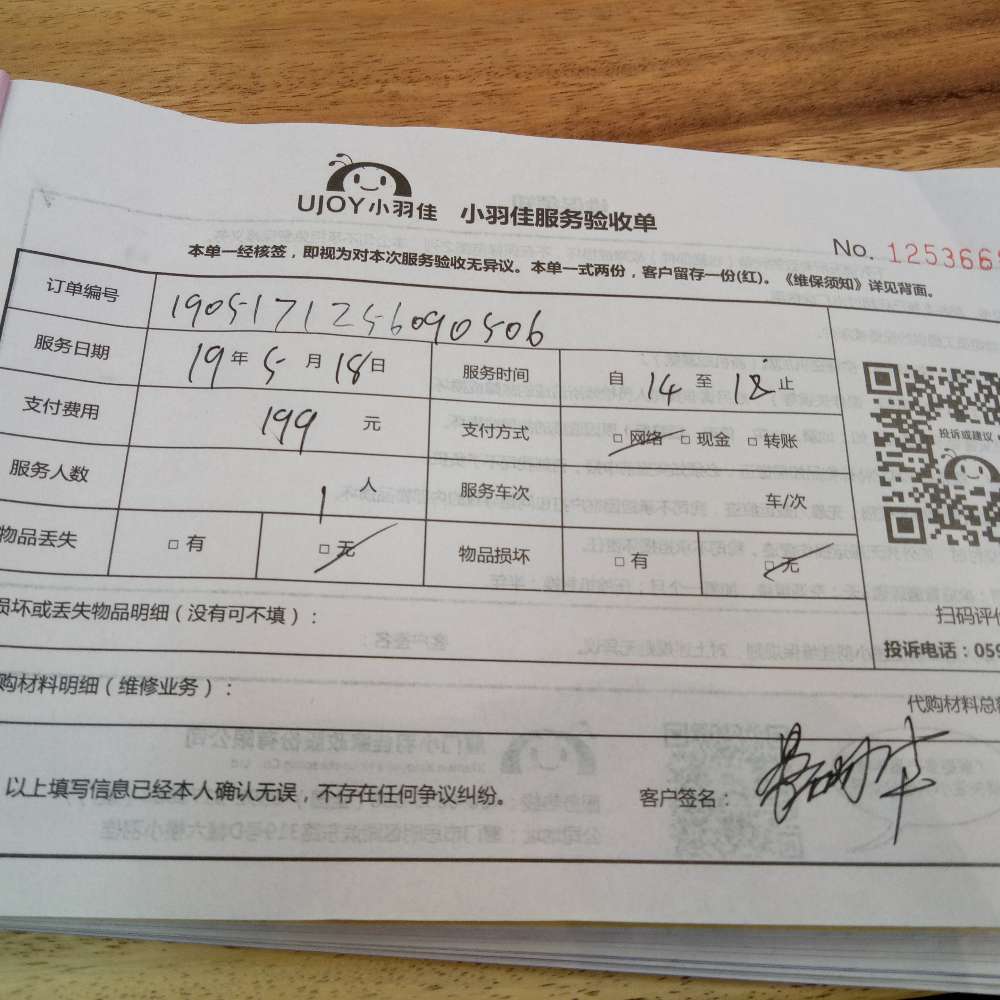 UJOY小羽佳 小羽佳服务验收单
No. 125366
本单一经核签，即视为对本次服务验收无异议。本单一式两份，客户留存一份(红)。《维保须知》详见背面。
订单编号 1905171256090506
服务日期 19年5月18日 服务时间 自14至18止
支付费用 199元 支付方式 □网络 □现金 □转账
服务人数 1人 服务车次 车/次
物品丢失 □有 □无 物品损坏 □有 □无
投诉或建议
扫码评
损坏或丢失物品明细（没有可不填）：
投诉电话：059
购材料明细（维修业务）：
代购材料总
以上填写信息已经本人确认无误，不存在任何争议纠纷。 客户签名：